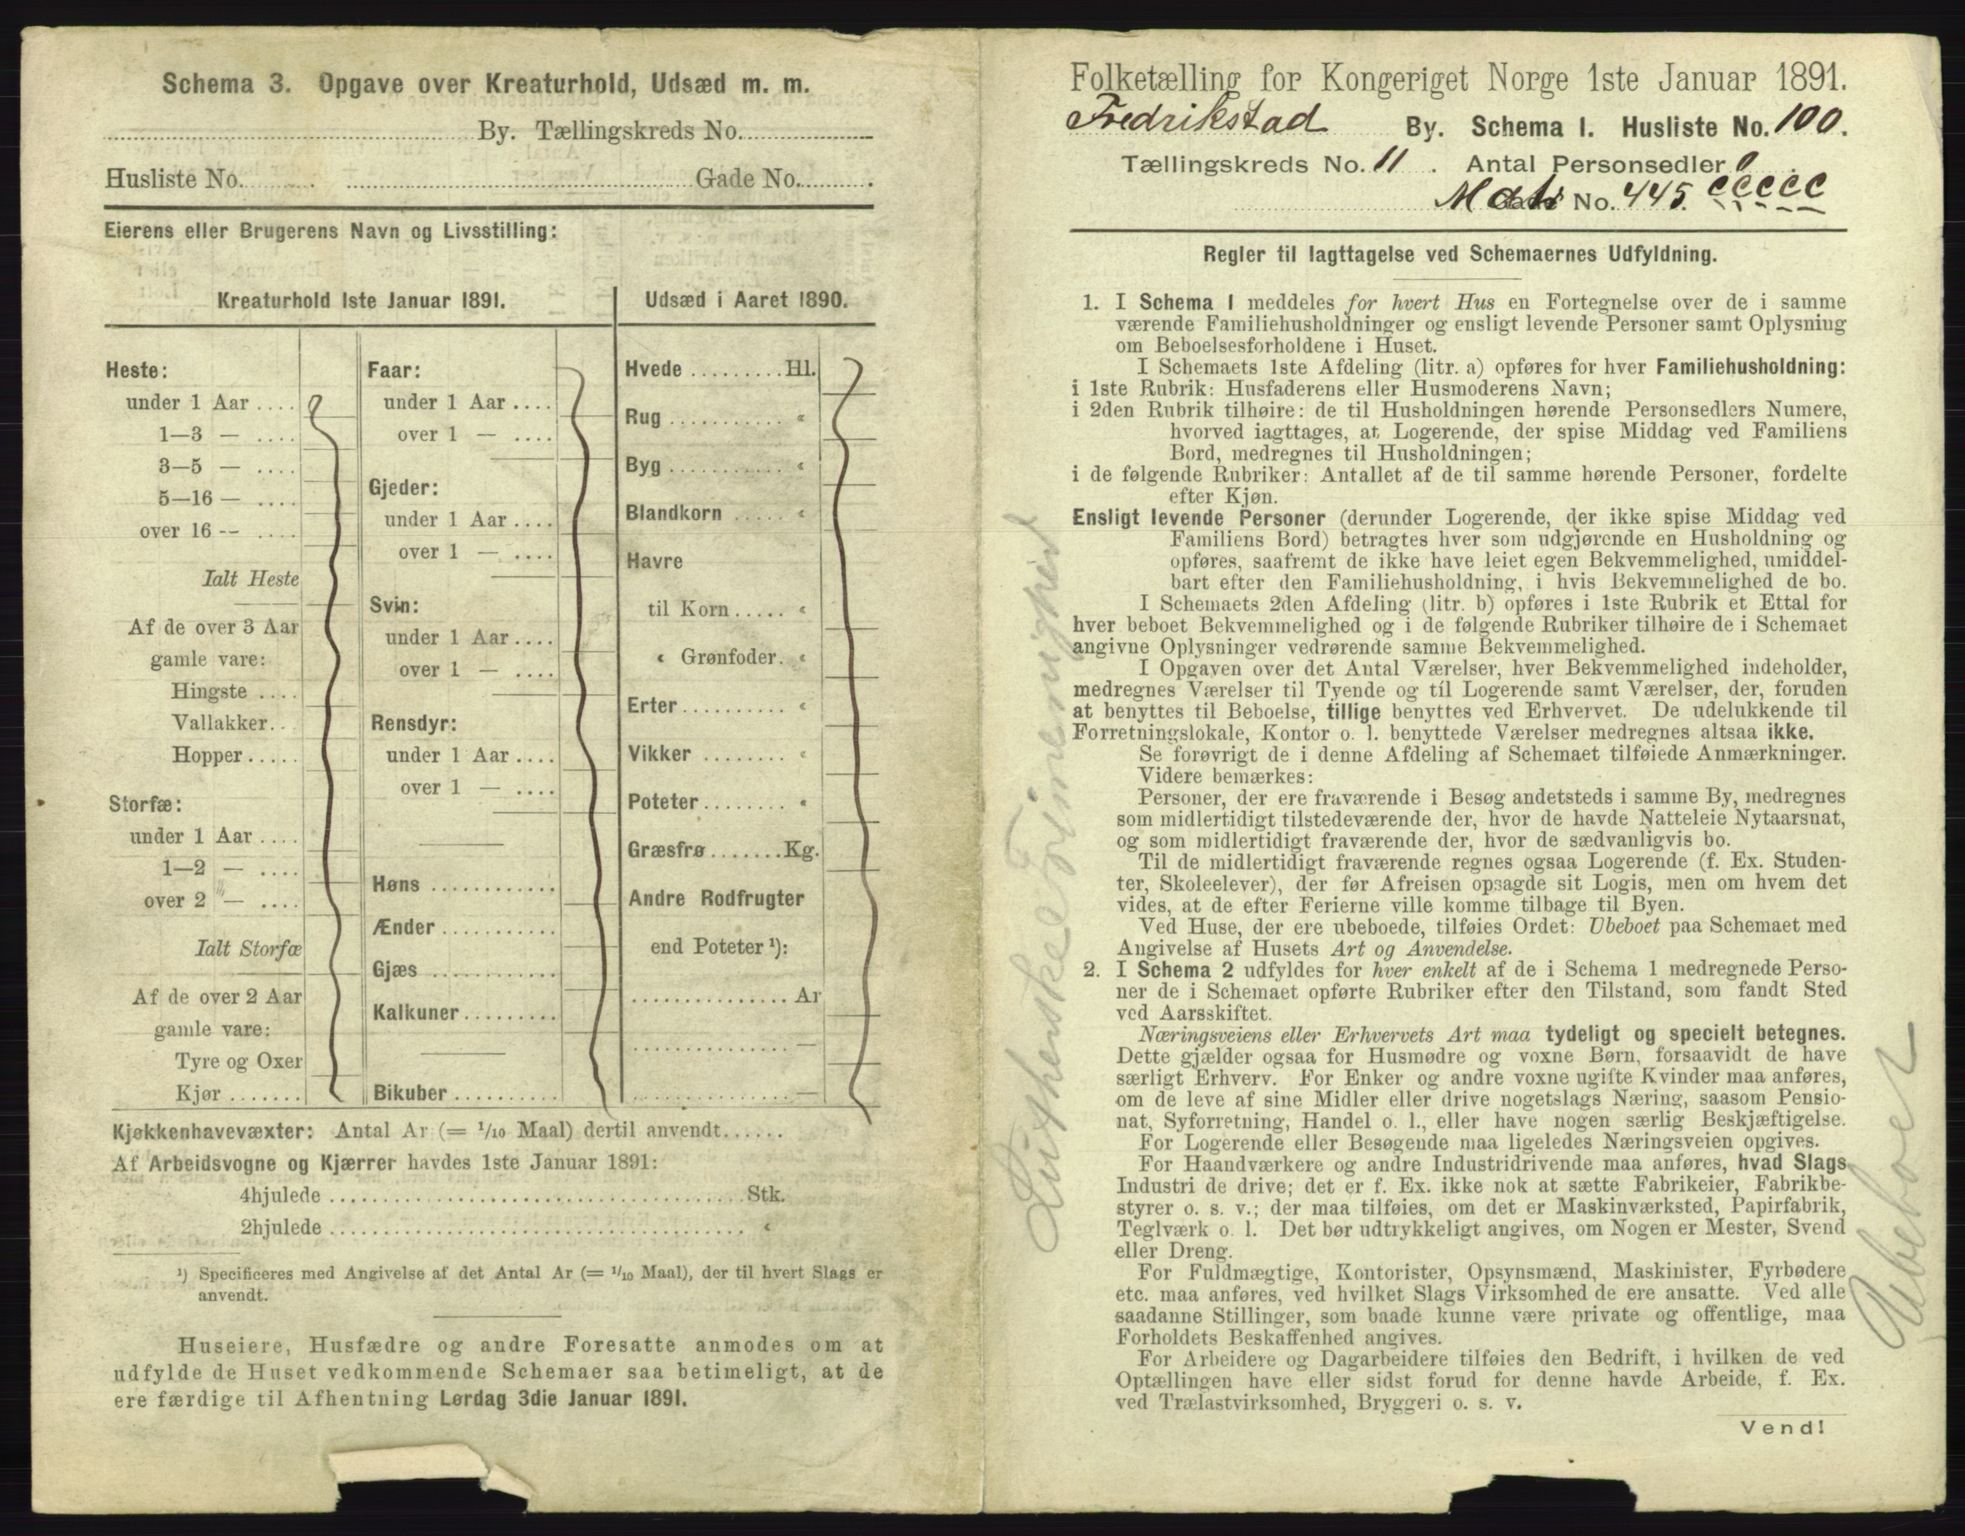 Schema 3. Opgave over Kreaturhold, Udsæd m. m.
By. Tællingskreds No.
Husliste No. Gade No.
Eierens eller Brugerens Navn og Livsstilling:
Kreaturhold 1ste Januar 1891.
Heste:
under 1 Aar
1—3 —
3—5 —
5—16 —
over 16 —
Ialt Heste
Af de over 3 Aar
gamle vare:
Hingste
Vallakker
Hopper
Storfæ:
under 1 Aar
1—2 —
over 2 —
Ialt Storfæ
Af de over 2 Aar
gamle vare:
Tyre og Oxer
Kjør
Faar:
under 1 Aar
over 1 —
Gjeder:
under 1 Aar
over 1 —
Svin:
under 1 Aar
over 1 —
Rensdyr:
under 1 Aar
over 1 —
Høns
Ænder
Gjæs
Kalkuner
Bikuber
Udsæd i Aaret 1890.
Hvede Hl.
Rug «
Byg «
Blandkorn «
Havre
til Korn «
« Grønfoder «
Erter «
Vikker «
Poteter «
Græsfrø Kg.
Andre Rodfrugter
end Poteter ¹):
Ar
—
—
Kjøkkenhavevæxter: Antal Ar (= 1/10 Maal) dertil anvendt
Af Arbeidsvogne og Kjærrer havdes 1ste Januar 1891:
4hjulede Stk.
2hjulede «
¹) Specificeres med Angivelse af det Antal Ar (= 1/10 Maal), der til hvert Slags er
anvendt.
Huseiere, Husfædre og andre Foresatte anmodes om at
udfylde de Huset vedkommende Schemaer saa betimeligt, at de
ere færdige til Afhentning Lørdag 3die Januar 1891.
Folketælling for Kongeriget Norge 1ste Januar 1891.
Fredrikstad By. Schema I. Husliste No. 100.
Tællingskreds No. 11. Antal Personsedler 0
Matr No. 445 ccccc
Regler til Iagttagelse ved Schemaernes Udfyldning.
1. I Schema I meddeles for hvert Hus en Fortegnelse over de i samme
værende Familiehusholdninger og ensligt levende Personer samt Oplysning
om Beboelsesforholdene i Huset.
I Schemaets 1ste Afdeling (litr. a) opføres for hver Familiehusholdning:
i 1ste Rubrik: Husfaderens eller Husmoderens Navn;
i 2den Rubrik tilhøire: de til Husholdningen hørende Personsedlers Numere,
hvorved iagttages, at Logerende, der spise Middag ved Familiens
Bord, medregnes til Husholdningen;
i de følgende Rubriker: Antallet af de til samme hørende Personer, fordelte
efter Kjøn.
Ensligt levende Personer (derunder Logerende, der ikke spise Middag ved
Familiens Bord) betragtes hver som udgjørende en Husholdning og
opføres, saafremt de ikke have leiet egen Bekvemmelighed, umiddel-
bart efter den Familiehusholdning, i hvis Bekvemmelighed de bo.
I Schemaets 2den Afdeling (litr. b) opføres i 1ste Rubrik et Ettal for
hver beboet Bekvemmelighed og i de følgende Rubriker tilhøire de i Schemaet
angivne Oplysninger vedrørende samme Bekvemmelighed.
I Opgaven over det Antal Værelser, hver Bekvemmelighed indeholder,
medregnes Værelser til Tyende og til Logerende samt Værelser, der, foruden
at benyttes til Beboelse, tillige benyttes ved Erhvervet. De udelukkende til
Forretningslokale, Kontor o. l. benyttede Værelser medregnes altsaa ikke.
Se forøvrigt de i denne Afdeling af Schemaet tilføiede Anmærkninger.
Videre bemærkes:
Personer, der ere fraværende i Besøg andetsteds i samme By, medregnes
som midlertidigt tilstedeværende der, hvor de havde Natteleie Nytaarsnat,
og som midlertidigt fraværende der, hvor de sædvanligvis bo.
Til de midlertidigt fraværende regnes ogsaa Logerende (f. Ex. Studen-
ter, Skoleelever), der før Afreisen opsagde sit Logis, men om hvem det
vides, at de efter Ferierne ville komme tilbage til Byen.
Ved Huse, der ere ubeboede, tilføies Ordet: Ubeboet paa Schemaet med
Angivelse af Husets Art og Anvendelse.
2. I Schema 2 udfyldes for hver enkelt af de i Schema 1 medregnede Perso-
ner de i Schemaet opførte Rubriker efter den Tilstand, som fandt Sted
ved Aarsskiftet.
Næringsveiens eller Erhvervets Art maa tydeligt og specielt betegnes.
Dette gjælder ogsaa for Husmødre og voxne Børn, forsaavidt de have
særligt Erhverv. For Enker og andre voxne ugifte Kvinder maa anføres,
om de leve af sine Midler eller drive nogetslags Næring, saasom Pensio-
nat, Syforretning, Handel o. l., eller have nogen særlig Beskjæftigelse.
For Logerende eller Besøgende maa ligeledes Næringsveien opgives.
For Haandværkere og andre Industridrivende maa anføres, hvad Slags
Industri de drive; det er f. Ex. ikke nok at sætte Fabrikeier, Fabrikbe-
styrer o. s. v.; der maa tilføies, om det er Maskinværksted, Papirfabrik,
Teglværk o. l. Det bør udtrykkeligt angives, om Nogen er Mester, Svend
eller Dreng.
For Fuldmægtige, Kontorister, Opsynsmænd, Maskinister, Fyrbødere
etc. maa anføres, ved hvilket Slags Virksomhed de ere ansatte. Ved alle
saadanne Stillinger, som baade kunne være private og offentlige, maa
Forholdets Beskaffenhed angives.
For Arbeidere og Dagarbeidere tilføies den Bedrift, i hvilken de ved
Optællingen have eller sidst forud for denne havde Arbeide, f. Ex.
ved Trælastvirksomhed, Bryggeri o. s. v.
Vend!
Luthenske
Ubeboet